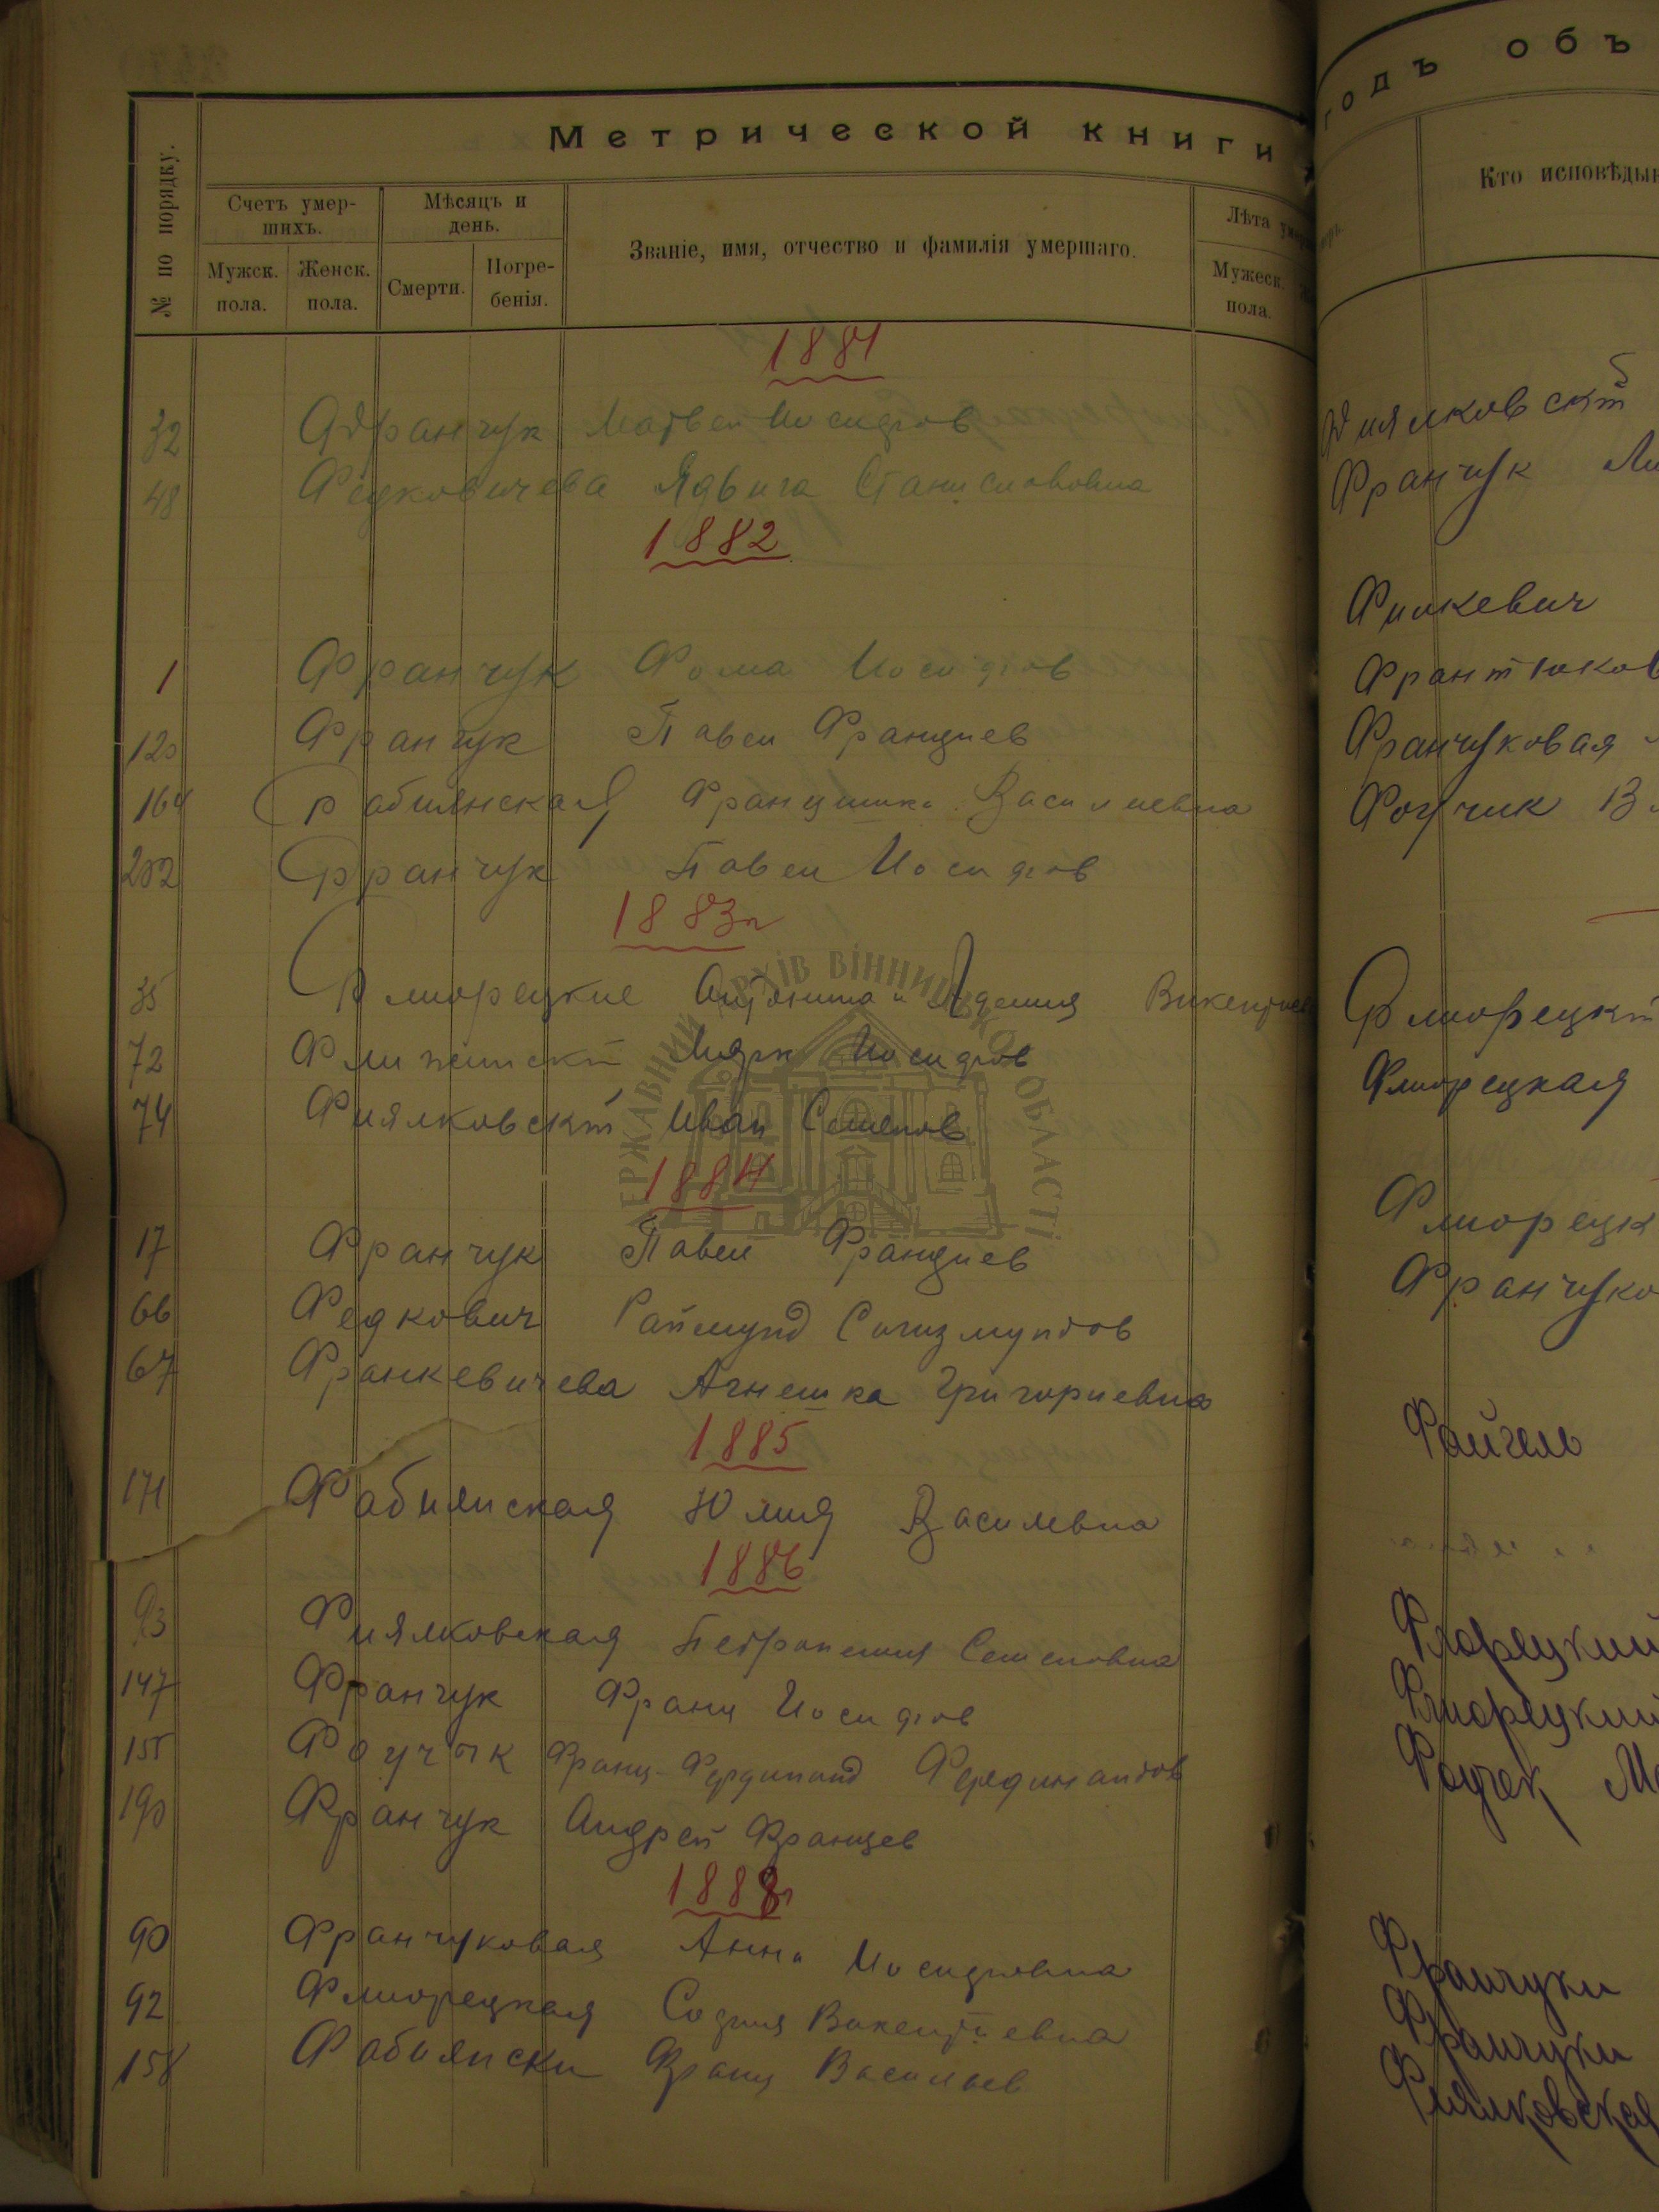 Метрической книги
№ по порядку.
Счетъ умер-
шихъ.
Мужск.
пола.
Женск.
пола.
Мѣсяцъ и
день.
Смерти.
Погре-
бенія.
Званіе, имя, отчество и фамилія умершаго.
Лѣта
Мужеск.
пола.
1881
32 Франчук Матвей Иосифов
48 Федковичева Ядвига Станиславовна
1882
1 Франчук Фома Иосифов
120 Франчук Павел Францiев
164 Фабиянская Францишка Василиевна
202 Франчук Павел Иосифов
1883г
35 Флиорецкие Антонина и Викентиев
72 Марк Иосифов
74 Фиялковскiй Иван Семенов
1884
17 Франчук Павел Францiев
66 Федкович Раймунд Сигизмундов
67 Франкевичева Агнешка Григориевна
1885
171 Фабиянская Юлия Василевна
1886
93 Фиялковская Петронелия Семеновна
147 Франчук Франц Иосифов
155 Франц-Фердинанд Фердинандов
190 Франчук Андрей Францев
1888г
90 Франчуковая Анна Иосифовна
92 Флиорецкая София Викентиевна
158 Фабиянски Франц Васильев
ДЕРЖАВНИЙ АРХІВ ВІННИЦЬКОЇ ОБЛАСТІ
годъ объ
Кто исповѣдыв
Фиялковскiй
Франчук
Филкевич
Франтюков
Франчуковая
Фоучик В
Флиорецкiй
Флиорецкая
Флиорецк
Франчуко
Файгель
Флорецкий
Флиорецкий
Фоучек М
Франчуки
Франчуки
Фиялковская